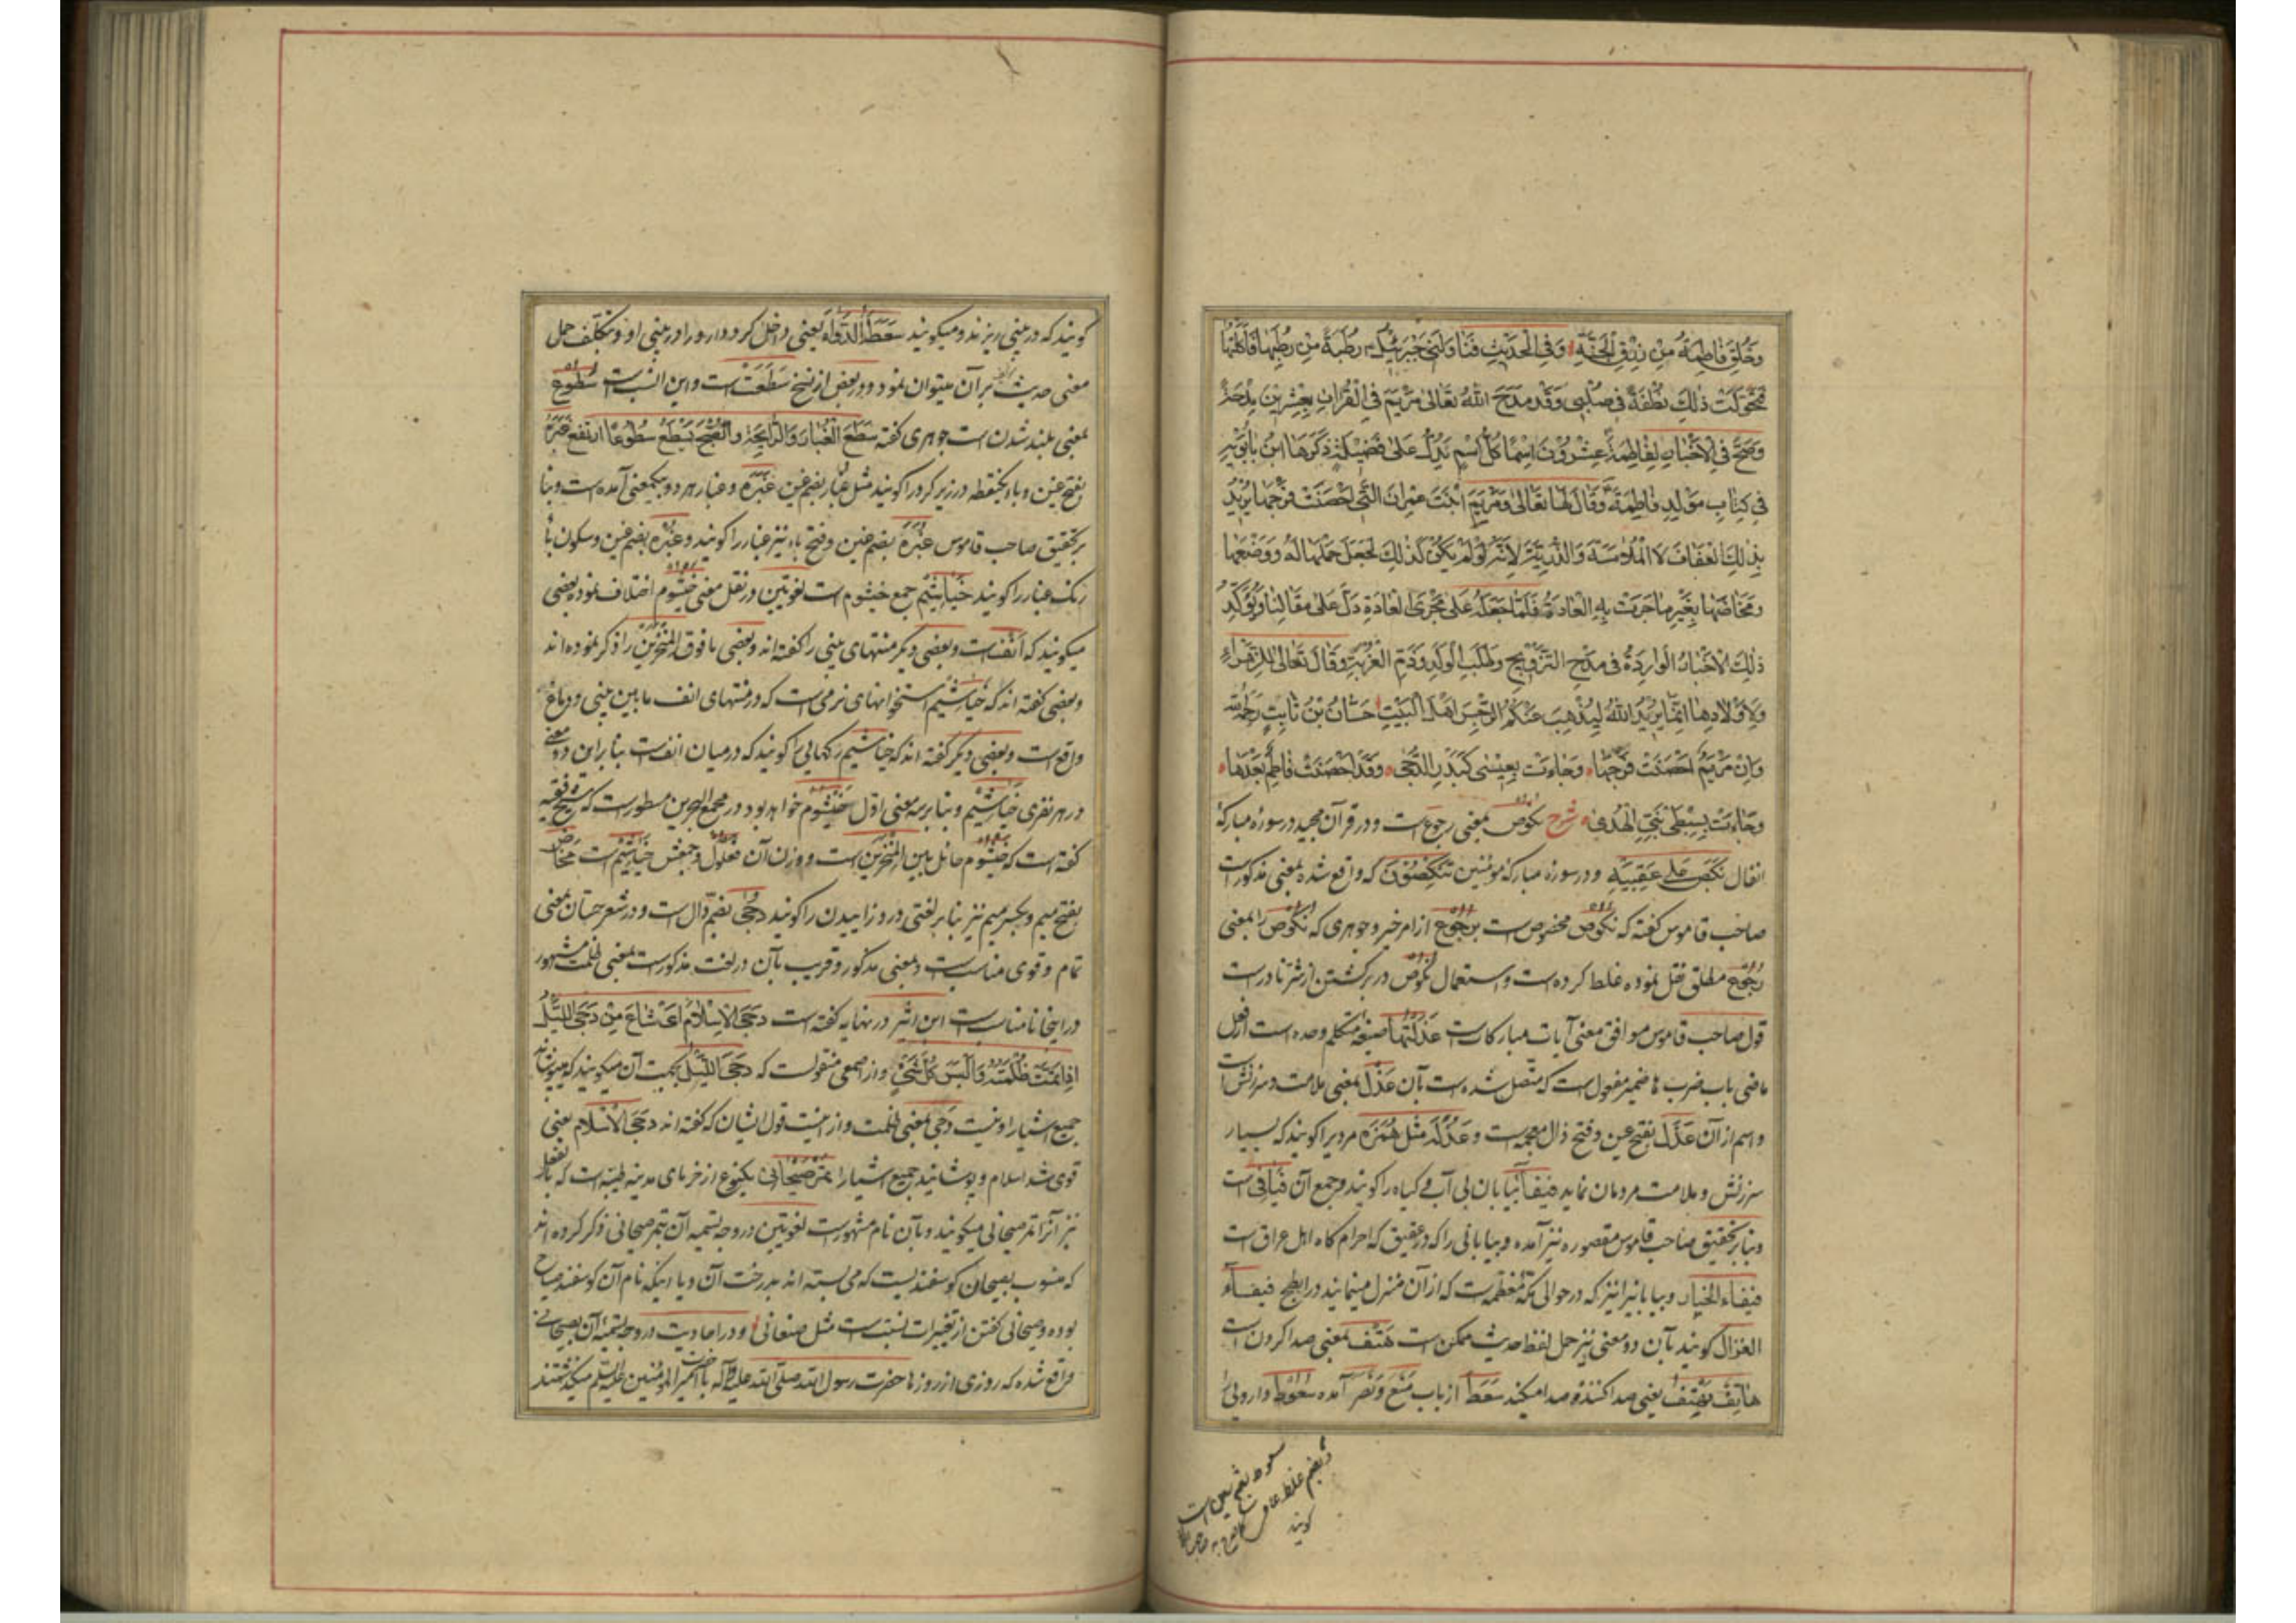 وخلق فاطمة من رزق الجنة وفى الحديث فناولنى جبرئيل رطبة من رطبها فاكلتها
فتحولت ذلك نطفة فى صلبى وقد مدح الله تعالى مريم فى القرآن بعشرين مدحة
وصح فى الاخبار لفاطمة عشرون اسما كل اسم يدل على فضيلة ذكرها ابن بابويه
فى كتاب مولد فاطمة وقال لها تعالى ومريم ابنت عمران التى احصنت فرجها يريد
بذلك العفاف لا الملامسة والذرية لانه لو لم يكن كذلك لجعل حملها له ووضعها
ومخاضها بغير ما جرت به العادة فلما جعله على مجرى العادة دل على مقالنا ويؤكد
ذلك الاخبار الواردة فى مدح التزويج وطلب الولد وذم العزبة وقال تعالى للزهراء
ولاولادها انما يريد الله ليذهب عنكم الرجس اهل البيت حسان بن ثابت رحمه الله
وان مريم احصنت فرجها وجاءت بعيسى كبدر الدجى وقد احصنت فاطم بعدها
وجاءت بسبطى نبى الهدى شرح نكوص بمعنى رجوع است ودر قرآن مجيد در سوره مباركه
انفال نكص على عقبيه ودر سوره مباركه مؤمنين تنكصون كه واقع شده بمعنى مذكور است
صاحب قاموس كفته كه نكوص مخصوص است برجوع از امر خير وجوهرى كه نكوص را بمعنى
رجوع مطلق نقل نموده غلط كرده است واستعمال نكوص در بركشتن از شر نادر است
قول صاحب قاموس موافق معنى آيات مباركات است عذلتها صيغه متكلم وحده است از فعل
ماضى باب ضرب ها ضمير مفعول است كه متصل شده است بآن عذل بمعنى ملامت وسرزنش است
واسم از آن عذل بفتح عين وفتح ذال معجمه است وعذلة مثل همزه مرديرا كويند كه بسيار
سرزنش وملامت مردمان نمايد فيفاء بيابان بى آب وكياه را كويند وجمع آن فيافى است
وبنابر تحقيق صاحب قاموس مقصوره نيز آمده وبيابانى را كه در عقيق كه احرام كاه اهل عراق است
فيفاء الخيار وبيابانيرا نيز كه در حوالى مكه معظمه است كه از آن منزل مينمايند در ابطح فيفاء
الغزال كويند بآن دو معنى نيز حمل لفظ حديث ممكن است هتف بمعنى صدا كردن است
هاتف يهتف يعنى صدا كننده صدا ميكند سعط از باب منع ونصر آمده سعوط دارويى را
سعوط بفتح سين است
وبضم غلط عام
كويند
كويند كه در بينى ريزند وميكويند سعط الدواء يعنى داخل كرد دارو را در بينى او وبتكلف حمل
معنى حديث برآن ميتوان نمود ودر بعض از نسخ سطعت است واين انسب است سطوع
بمعنى بلند شدن است جوهرى كفته سطع الغبار والرائحة والصبح يسطع سطوعا ارتفع غبرة
بفتح عين وباء يكنقطه در زير كرد را كويند مثل غبار بضم غين غبره وغبار هر دو بيكمعنى آمده است وبنا
بر تحقيق صاحب قاموس غبرة بضم غين وفتح باء نيز غبار را كويند وغبره بضم غين وسكون با
رنك غبار را كويند خياشيم جمع خيشوم است لغويين در نقل معنى خيشوم اختلاف نموده بعضى
ميكويند كه انف است وبعضى ديكر منتهاى بينى را كفته اند وبعضى ما فوق المنخرين را ذكر نموده اند
وبعضى كفته اند كه خياشيم استخوانهاى نرمى است كه در منتهاى انف ما بين بينى ودماغ
واقع است وبعضى ديكر كفته اند كه خياشيم ركهايى را كويند كه در ميان انف است بنابر اين دو معنى
در هر نفرى خياشيم وبنابر سه معنى اول خيشوم خواهد بود در مجمع البحرين مسطور است كه
كفته است كه خيشوم حائل بين المنخرين است ووزن آن فيعول وجمعش خياشيم است مخاض
بفتح ميم وبكسر ميم نيز بنابر لغتى درد زاييدن را كويند دجى بضم دال است ودر شعر حسان بمعنى
تمام وقوى مناسب است وبمعنى مذكور وقريب بآن در لغت مذكور است بمعنى ظلمت مشهور
در اينجا نامناسب است ابن اثير در نهايه كفته است دجى الاسلام اى شاع من دجى الليل
اذا تمت ظلمته والبس كل شئ واز اصمعى منقولست كه دجى الليل بجهت آن ميكويند كه ميپوشاند
جميع اشيارا ونيست دجى بمعنى ظلمت واز اينست قول ايشان كه كفته اند دجى الاسلام يعنى
قوى شد اسلام وپوشانيد جميع اشيارا تمر صيحانى يكنوع از خرماى مدينه طيبه است كه بالفعل
نيز آنرا تمر صيحانى ميكويند وبآن نام مشهور است لغويين در وجه تسميه آن بتمر صيحانى ذكر كرده اند
كه منسوب بصيحان كوسفنديست كه مى بسته اند بدرخت آن ويا اينكه نام آن كوسفند صياح
بوده وصيحانى كفتن از تغييرات نسبت است مثل صنعانى ودر احاديث در وجه تسميه آن بصيحانى
واقع شده كه روزى از روزها حضرت رسول الله صلى الله عليه وآله با حضرت امير المؤمنين عليه السلم ميكذشتند